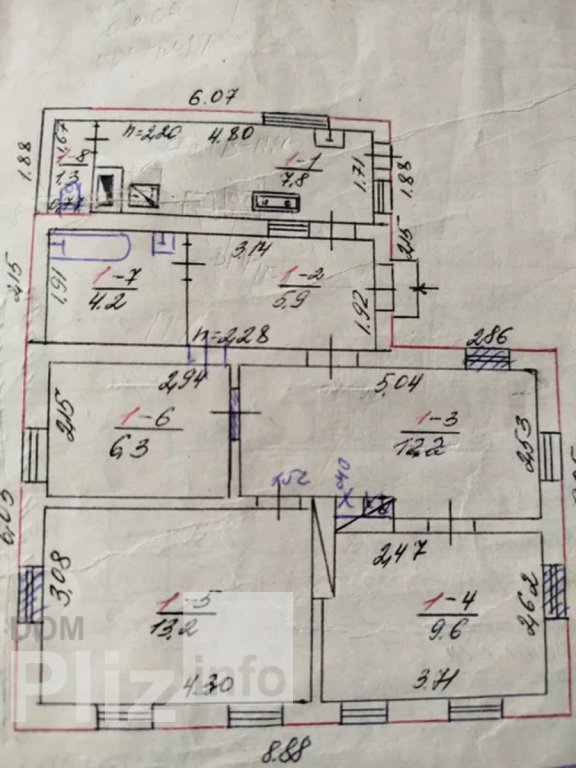 6.07
h=2,20
4.80
1.67
1-8
1.3
1-1
7,8
1.71
1.88
1.88
2,15
2,15
1.91
1-7
4.2
3.14
1-2
5.9
1.92
h=2,28
286
2,94
5.04
2,15
1-6
6,3
1-3
12.2
2,53
6,05
2,47
3,08
1-5
13,2
1-4
9.6
2,62
4.30
3.71
8.88
DOM
Pliz
info